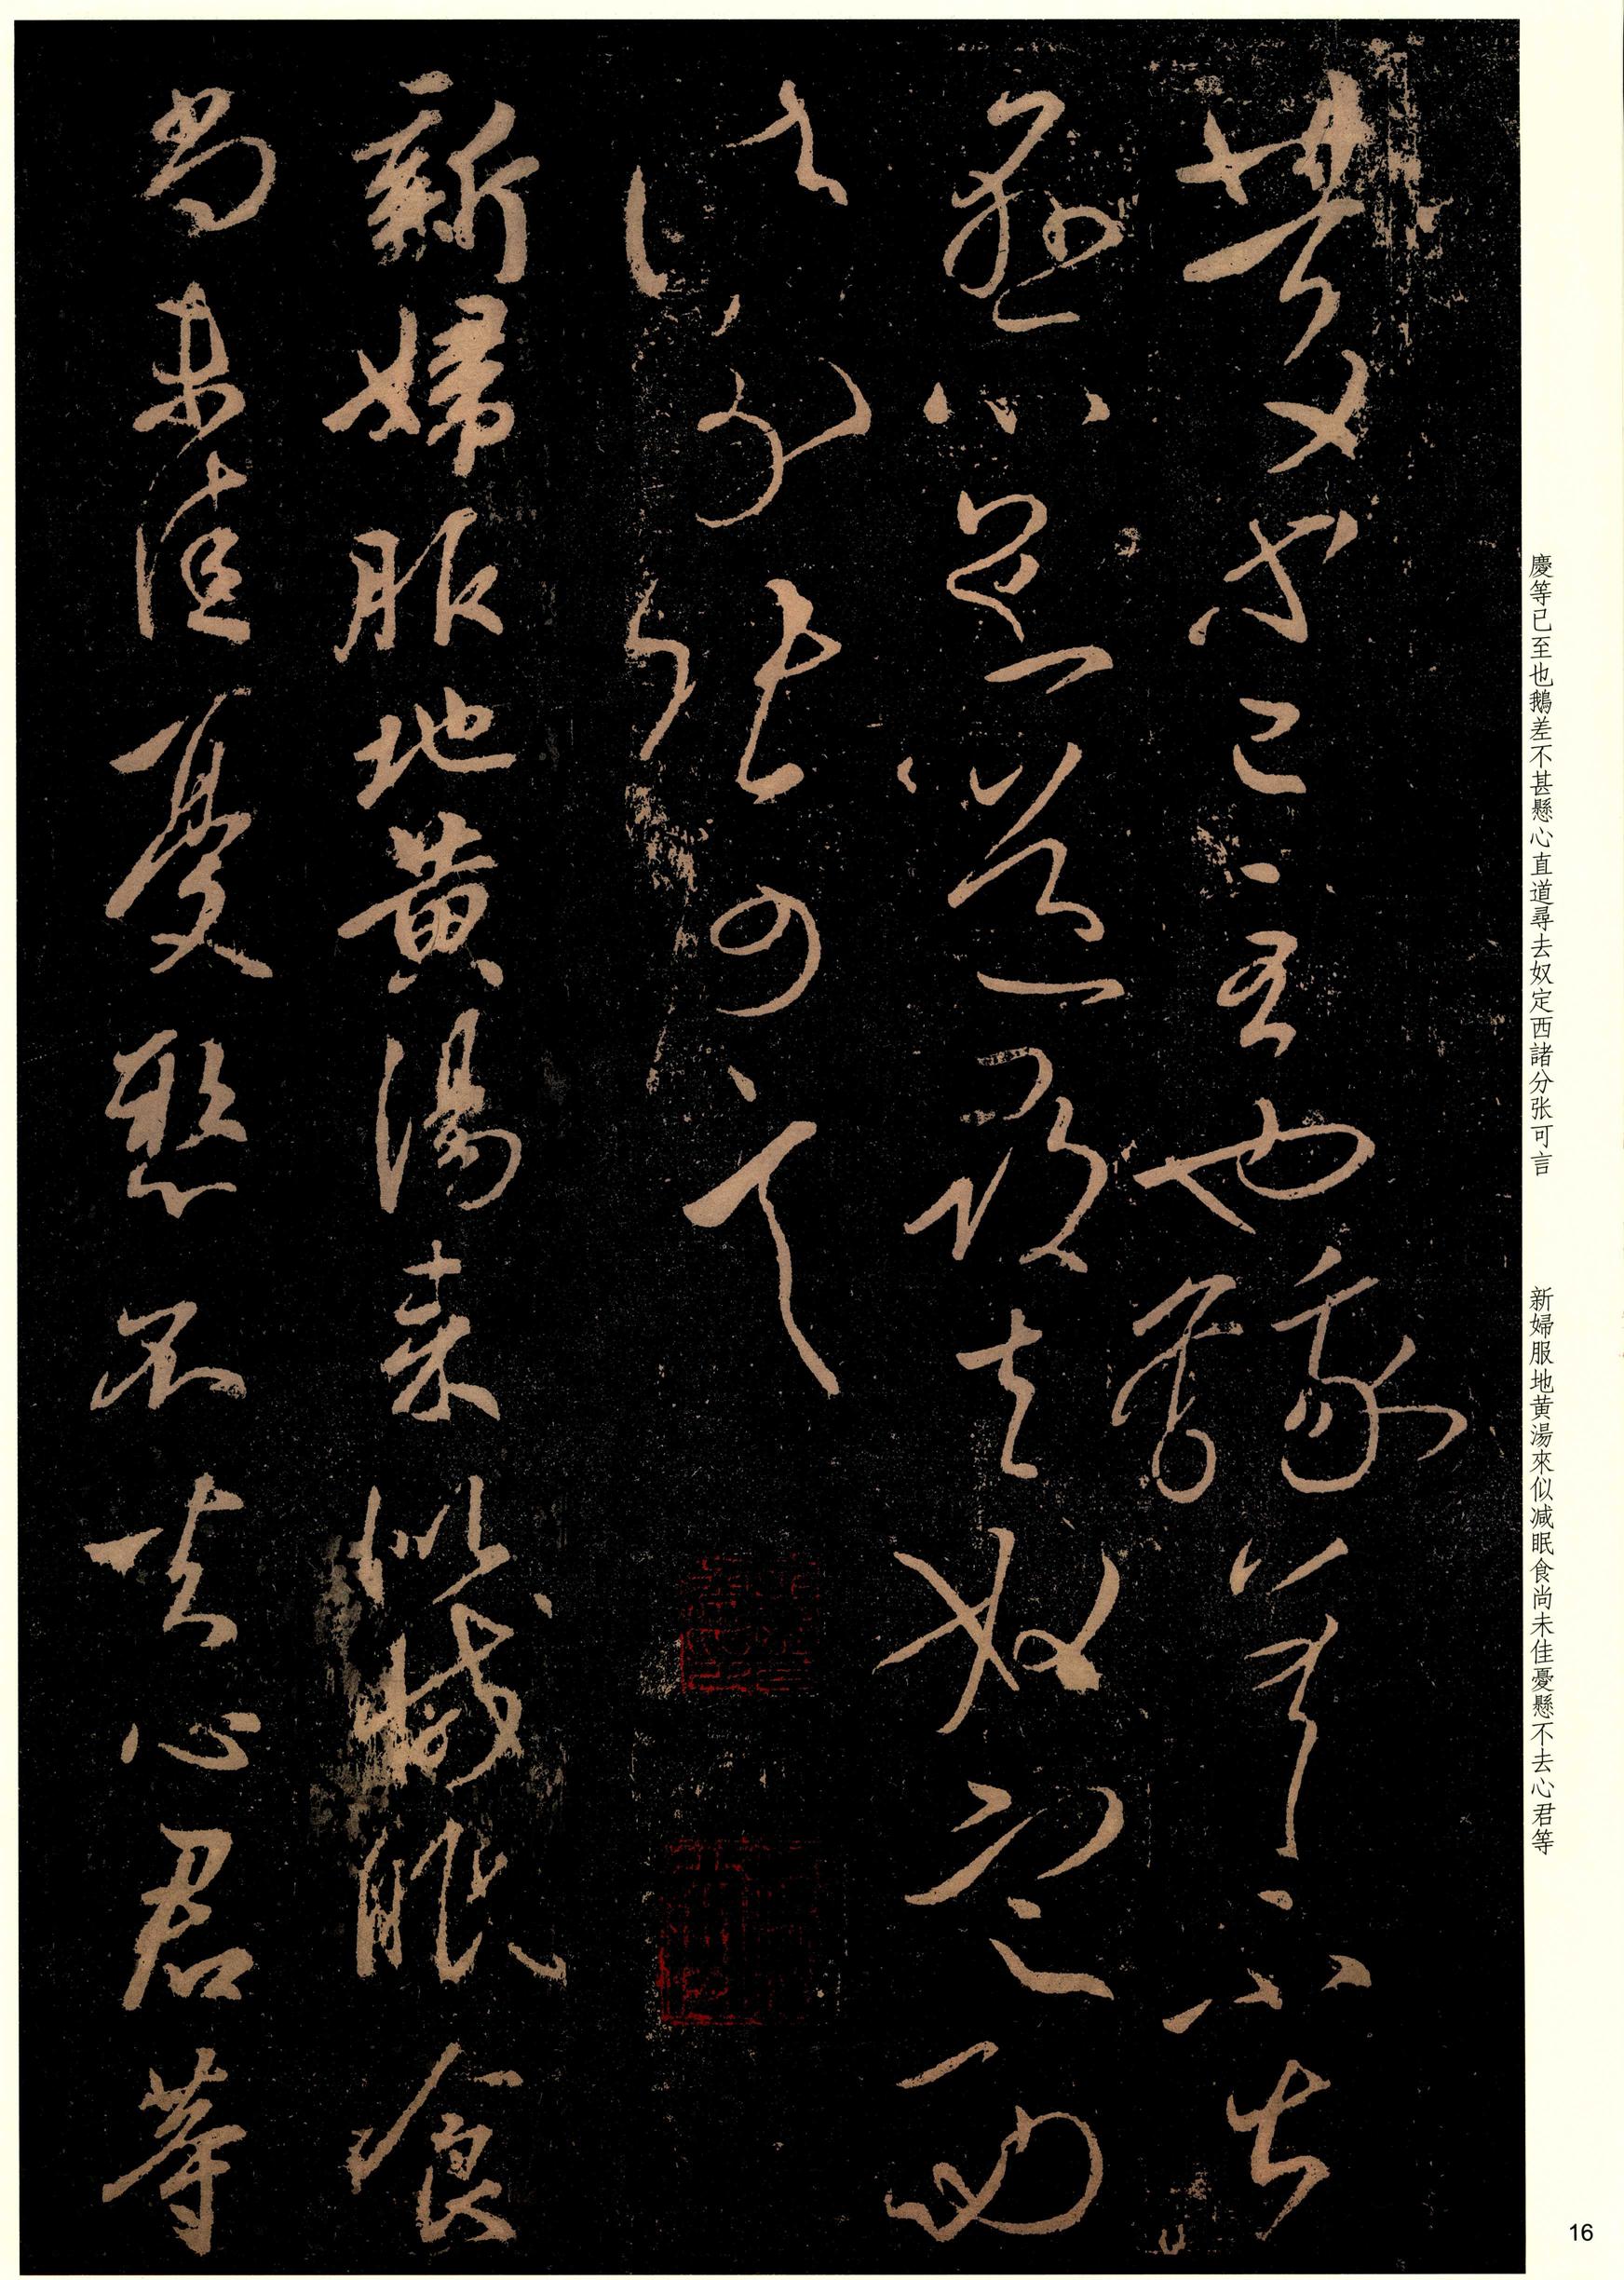 慶等已至也鵝差不甚
懸心直道尋去奴定西
諸分张可言
新婦服地黄湯来似减眠食
尚未佳憂懸不去心君等
慶等已至也鵝差不甚懸心直道尋去奴定西諸分张可言
新婦服地黄湯來似减眠食尚未佳憂懸不去心君等
16